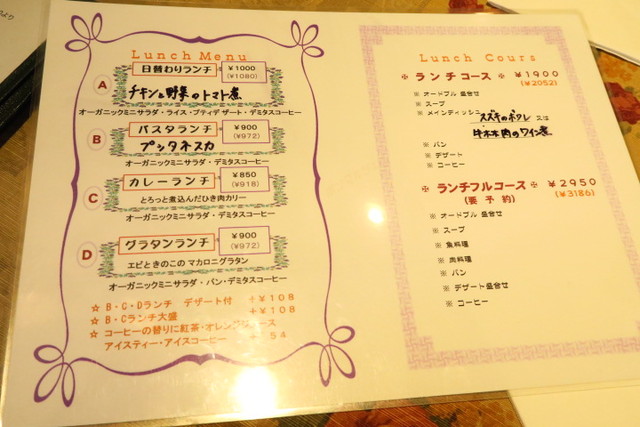 より
Lunch Menu
A
日替わりランチ
¥1000
(¥1080)
チキンと野菜のトマト煮
オーガニックミニサラダ・ライス・プティデザート・デミタスコーヒー
B
パスタランチ
¥900
(¥972)
プッタネスカ
オーガニックミニサラダ・デミタスコーヒー
C
カレーランチ
¥850
(¥918)
とろっと煮込んだひき肉カリー
オーガニックミニサラダ・デミタスコーヒー
D
グラタンランチ
¥900
(¥972)
エビときのこの マカロニグラタン
オーガニックミニサラダ・パン・デミタスコーヒー
☆ B・C・Dランチ デザート付 +¥108
☆ B・Cランチ大盛 +¥108
☆ コーヒーの替りに紅茶・オレンジジュース
アイスティー・アイスコーヒー +54
Lunch Cours
※ ランチコース ※ ¥1900
(¥2052)
※ オードブル 盛合せ
※ スープ
※ メインディッシュ スズキのポワレ 又は
牛ホホ肉のワイン煮
※ パン
※ デザート
※ コーヒー
※ランチフルコース※ ¥2950
(要予約) (¥3186)
※ オードブル 盛合せ
※ スープ
※ 魚料理
※ 肉料理
※ パン
※ デザート盛合せ
※ コーヒー